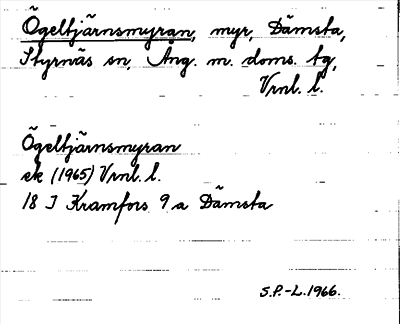 Ögeltjärnsmyran, myr, Dämsta,
Styrnäs sn, Ång. m. doms. tg,
Vrnl. l.
Ögeltjärnsmyran
ek (1965) Vrnl. l.
18 I Kramfors 9 a Dämsta
S.P.-L. 1966.